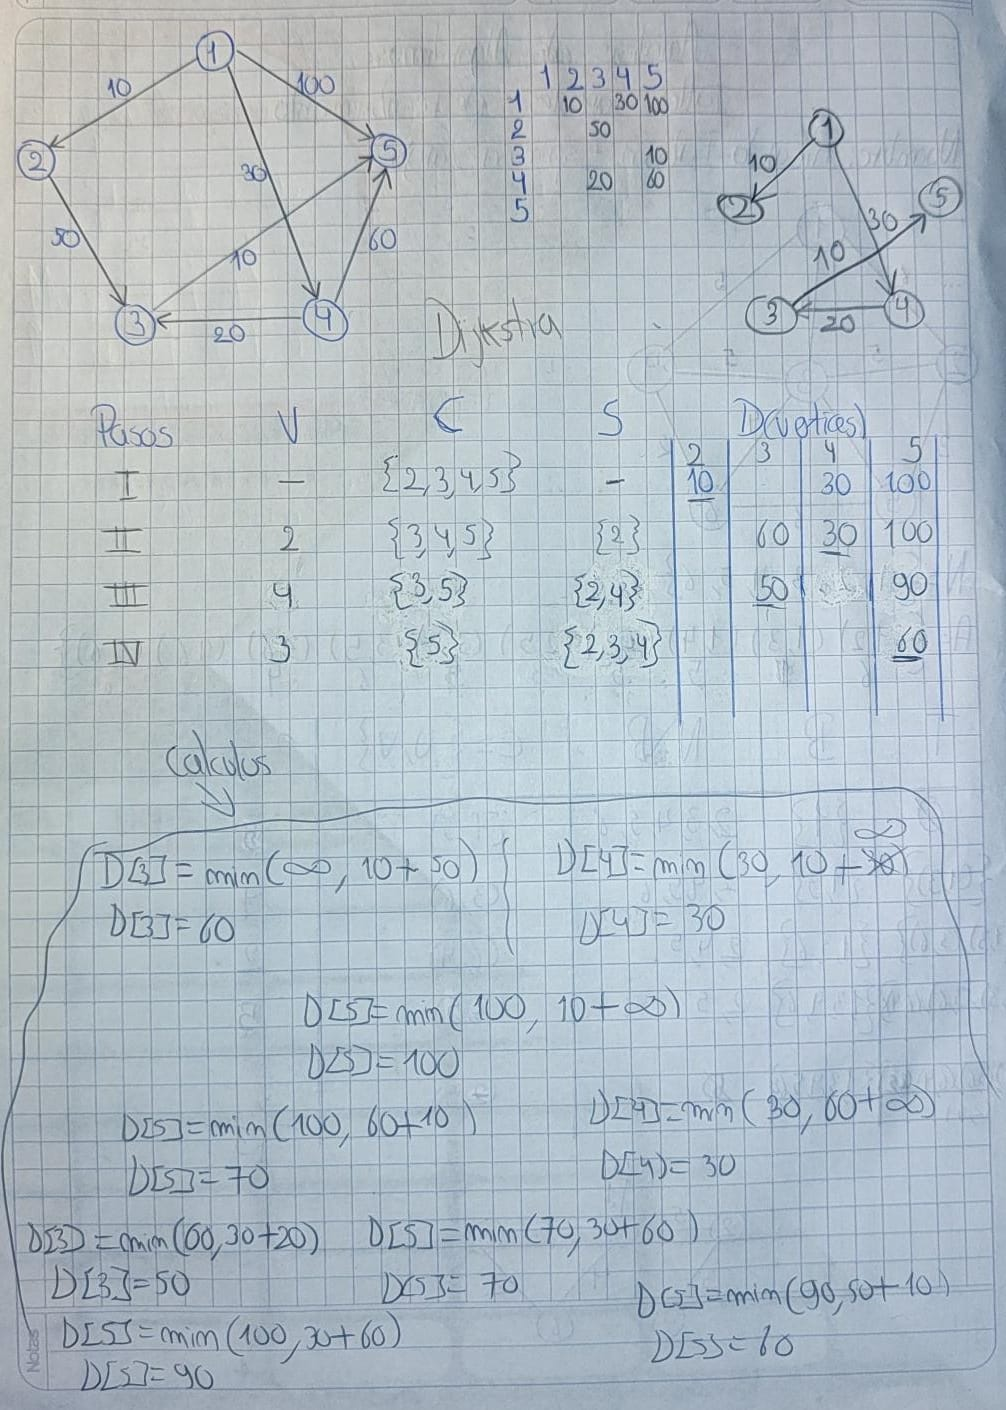 1
10
100
2
5
30
50
10
60
3
20
4
1 2 3 4 5
1 10 30 100
2 50
3 10
4 20 60
5
1
10
2
5
30
10
3
20
4
Dijkstra
Pasos V C S D(vertices)
2 3 4 5
I - {2,3,4,5} - 10 30 100
II 2 {3,4,5} {2} 60 30 100
III 4 {3,5} {2,4} 50 90
IV 3 {5} {2,3,4} 60
Calculos
D[3]=min(∞, 10+50)
D[3]=60
D[4]=min(30, 10+∞)
D[4]=30
D[5]=min(100, 10+∞)
D[5]=100
D[5]=min(100, 60+10)
D[5]=70
D[4]=min(30, 60+∞)
D[4]=30
D[3]=min(60,30+20)
D[3]=50
D[5]=min(70,30+60)
D[5]=70
D[5]=min(90,50+10)
D[5]=60
D[5]=min(100,30+60)
D[5]=90
Notas